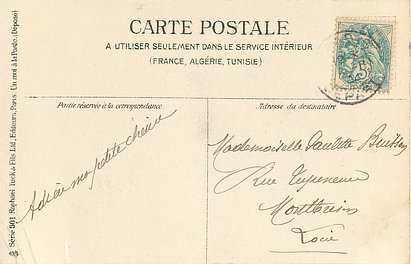 CARTE POSTALE
A UTILISER SEULEMENT DANS LE SERVICE INTÉRIEUR
(FRANCE, ALGÉRIE, TUNISIE)
Partie réservée à la correspondance.
Adresse du destinataire
Adieu ma petite
Mademoiselle Paulette
Rue
Montbrison
Loire
Série 501 Raphael Tuck & Fils Ltd, Editeurs, Paris. Un mot à la Poste. (Déposé)